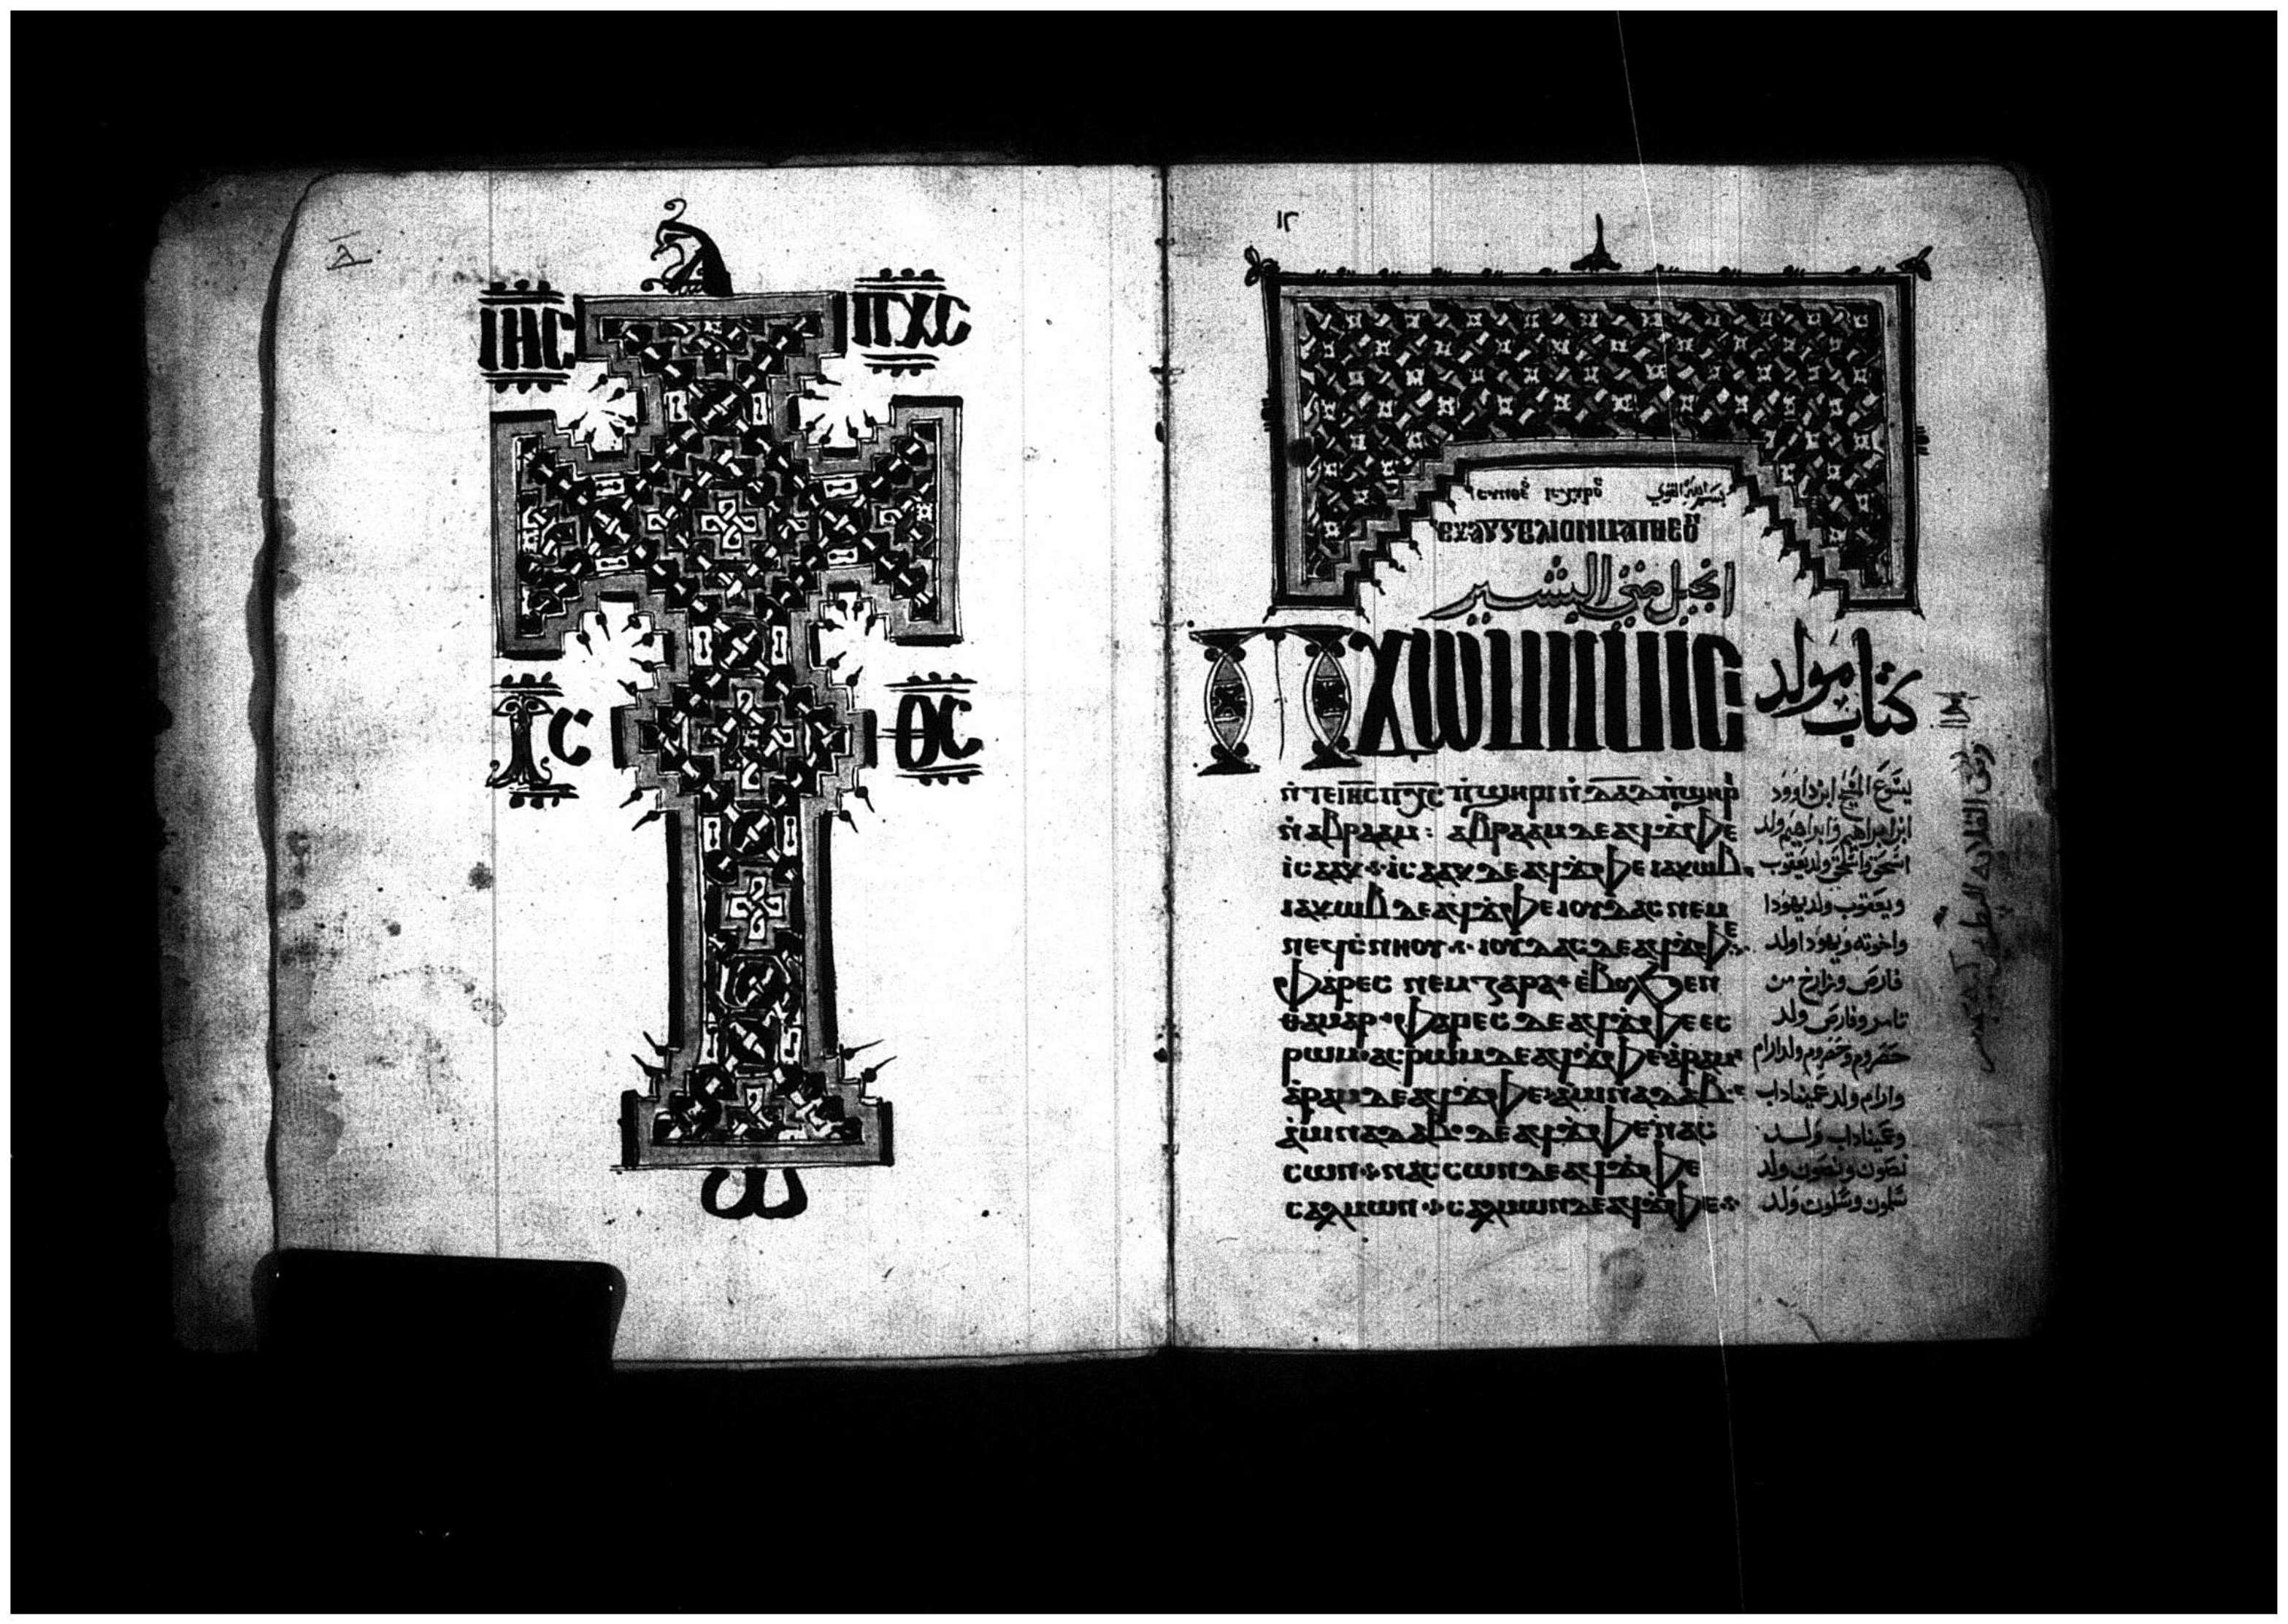 ⲓⲏⲥ ⲡⲭⲥ
ⲓⲥ ⲑⲥ
ⲱ
١٢
بسم الله القوي
ⲉⲩⲁⲅⲅⲉⲗⲓⲟⲛ ⲙⲁⲧⲑⲉⲟⲩ
انجيل متي البشير
ⲡϫⲱⲙ ⲙⲙⲓⲥⲓ كتاب مولد
ⲛ̀ⲧⲉ ⲓⲏⲥ ⲡⲭⲥ ⲡ̀ϣⲏⲣⲓ ⲛ̀ⲇⲁⲇ ⲡ̀ϣⲏⲣ يسوع المسيح ابن داوود
ⲛ̀ⲁⲃⲣⲁⲁⲙ : ⲁⲃⲣⲁⲁⲙ ⲇⲉ ⲁϥϫ̀ⲫⲉ ابن ابراهيم وابراهيم ولد
ⲓⲥⲁⲁⲕ ⲓⲥⲁⲁⲕ ⲇⲉ ⲁϥϫ̀ⲫⲉ ⲓⲁⲕⲱⲃ اسحق واسحق ولد يعقوب
ⲓⲁⲕⲱⲃ ⲇⲉ ⲁϥϫ̀ⲫⲉ ⲓⲟⲩⲇⲁⲥ ⲛⲉⲙ ويعقوب ولد يهودا
ⲛⲉϥⲥ̀ⲛⲏⲟⲩ ⲓⲟⲩⲇⲁⲥ ⲇⲉ ⲁϥϫ̀ⲫⲉ واخوته ويهودا ولد
ⲫⲁⲣⲉⲥ ⲛⲉⲙ ⲍⲁⲣⲁ ⲉ̀ⲃⲟⲗϧⲉⲛ فارص وزارح من
ⲑⲁⲙⲁⲣ ⲫⲁⲣⲉⲥ ⲇⲉ ⲁϥϫ̀ⲫⲉ ⲉⲥ تامر وفارص ولد
ⲣⲱⲙ ⲉⲥⲣⲱⲙ ⲇⲉ ⲁϥϫ̀ⲫⲉ ⲁ̀ⲣⲁⲙ حصروم وحصروم ولد ارام
ⲁ̀ⲣⲁⲙ ⲇⲉ ⲁϥϫ̀ⲫⲉ ⲁⲙⲓⲛⲁⲇⲁⲃ وارام ولد عميناداب
ⲁ̀ⲙⲓⲛⲁⲇⲁⲃ ⲇⲉ ⲁϥϫ̀ⲫⲉ ⲛⲁⲥ وعميناداب ولد
ⲥⲱⲛ ⲛⲁⲥⲥⲱⲛ ⲇⲉ ⲁϥϫ̀ⲫⲉ نصون ونصون ولد
ⲥⲁⲗⲙⲱⲛ ⲥⲁⲗⲙⲱⲛ ⲇⲉ ⲁϥϫ̀ⲫⲉ سلمون وسلمون ولد